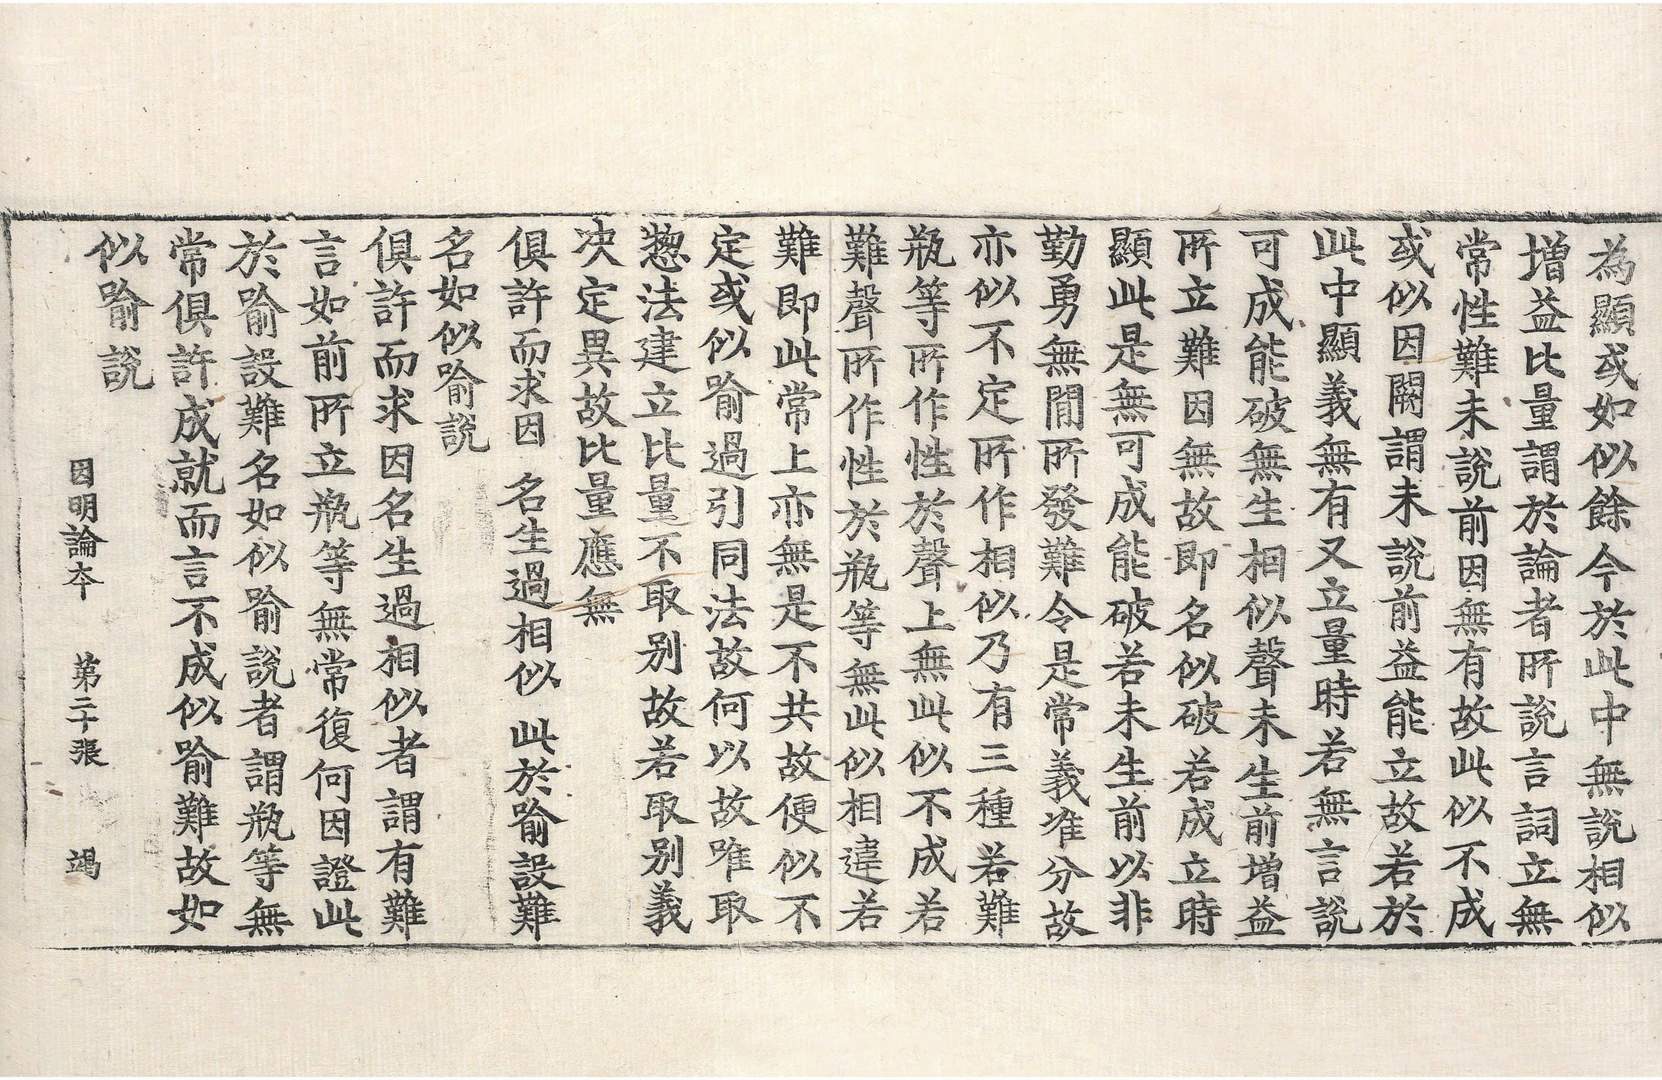 為顯或如似餘今於此中無說相似
增益比量謂於論者所說言詞立無
常性難未說前因無有故此似不成
或似因闕謂未說前益能立故若於
此中顯義無有又立量時若無言說
可成能破無生相似聲未生前增益
所立難因無故即名似破若成立時
顯此是無可成能破若未生前以非
勤勇無間所發難令是常義准分故
亦似不定所作相似乃有三種若難
瓶等所作性於聲上無此似不成若
難聲所作性於瓶等無此似相違若
難即此常上亦無是不共故便似不
定或似喻過引同法故何以故唯取
惣法建立比量不取別故若取別義
決定異故比量應無
俱許而求因 名生過相似 此於喻設難
名如似喻說
俱許而求因名生過相似者謂有難
言如前所立瓶等無常復何因證此
於喻設難名如似喻說者謂瓶等無
常俱許成就而言不成似喻難故如
似喻說
因明論本 第二十張 竭